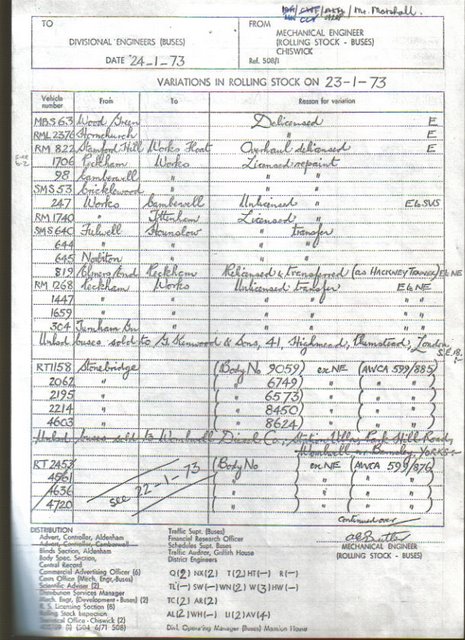 Mr. Marshall.
TO
FROM
DIVISIONAL ENGINEERS (BUSES)
MECHANICAL ENGINEER
(ROLLING STOCK - BUSES)
CHISWICK
DATE 24-1-73
Ref. 508/1
VARIATIONS IN ROLLING STOCK ON 23-1-73
Vehicle number From To Reason for variation
MBS 63 Wood Green Delicensed E
RML 2376 Hornchurch " E
RM 822 Stamford Hill Works Float Overhaul delicensed E
1706 Peckham Works Licensed repaint
98 Camberwell " "
SMS 53 Cricklewood " "
247 Works Camberwell Unlicensed " E6 SWS
RM 1740 " Tottenham Licensed "
SMS 640 Fulwell Hounslow " transfer
644 " " " "
645 Norbiton " " "
819 Elmers End Peckham Relicensed & transferred (as HACKNEY TRAINER) E6 NE
RM 1268 Peckham Works Unlicensed transfer E6 NE
1447 " " " " " "
1659 " " " " " "
304 Turnham Gn " " " " "
Unlicsd buses sold to G. Kenwood & Sons, 41, Highmead, Plumstead, London, S.E.18.
RT 1158 Stonebridge (Body No 9059) ex NE (AWCA 599/885)
2062 " ( " 6749) " ( " " )
2195 " ( " 6573) " ( " " )
2214 " ( " 8450) " ( " " )
4603 " ( " 8624) " ( " " )
Unlicsd buses sold to Wombwell Diesel Co., Station Villas, Park Hill Road,
Wombwell nr Barnsley, YORKS
RT 2453 (Body No ex NE (AWCA 599/876)
4561 " " " "
4636 " " " "
4720 " " " "
see 22-1-73
continued over
DISTRIBUTION
Advert. Controller, Aldenham
Advert. Controller, Camberwell
Blinds Section, Aldenham
Body Spec. Section,
Central Record
Commercial Advertising Officer (6)
Costs Office (Mech. Engr. Buses)
Scientific Adviser (2)
Distribution Services Manager
Mech. Engr. (Development - Buses) (2)
R. S. Licensing Section (8)
Rolling Stock Inspection
Traffic Supt. (Buses)
Financial Research Officer
Schedules Supt. Buses
Traffic Auditor, Griffith House
District Engineers
Q(2) NX(2) T(2) HT(-) R(-)
TL(-) SW(-) WN(2) W(3) HW(-)
TC(2) AR(2)
AL(2) WH(-) U(2) AV(4)
Divl. Operating Manager (Buses) Mansion House
MECHANICAL ENGINEER
(ROLLING STOCK - BUSES)